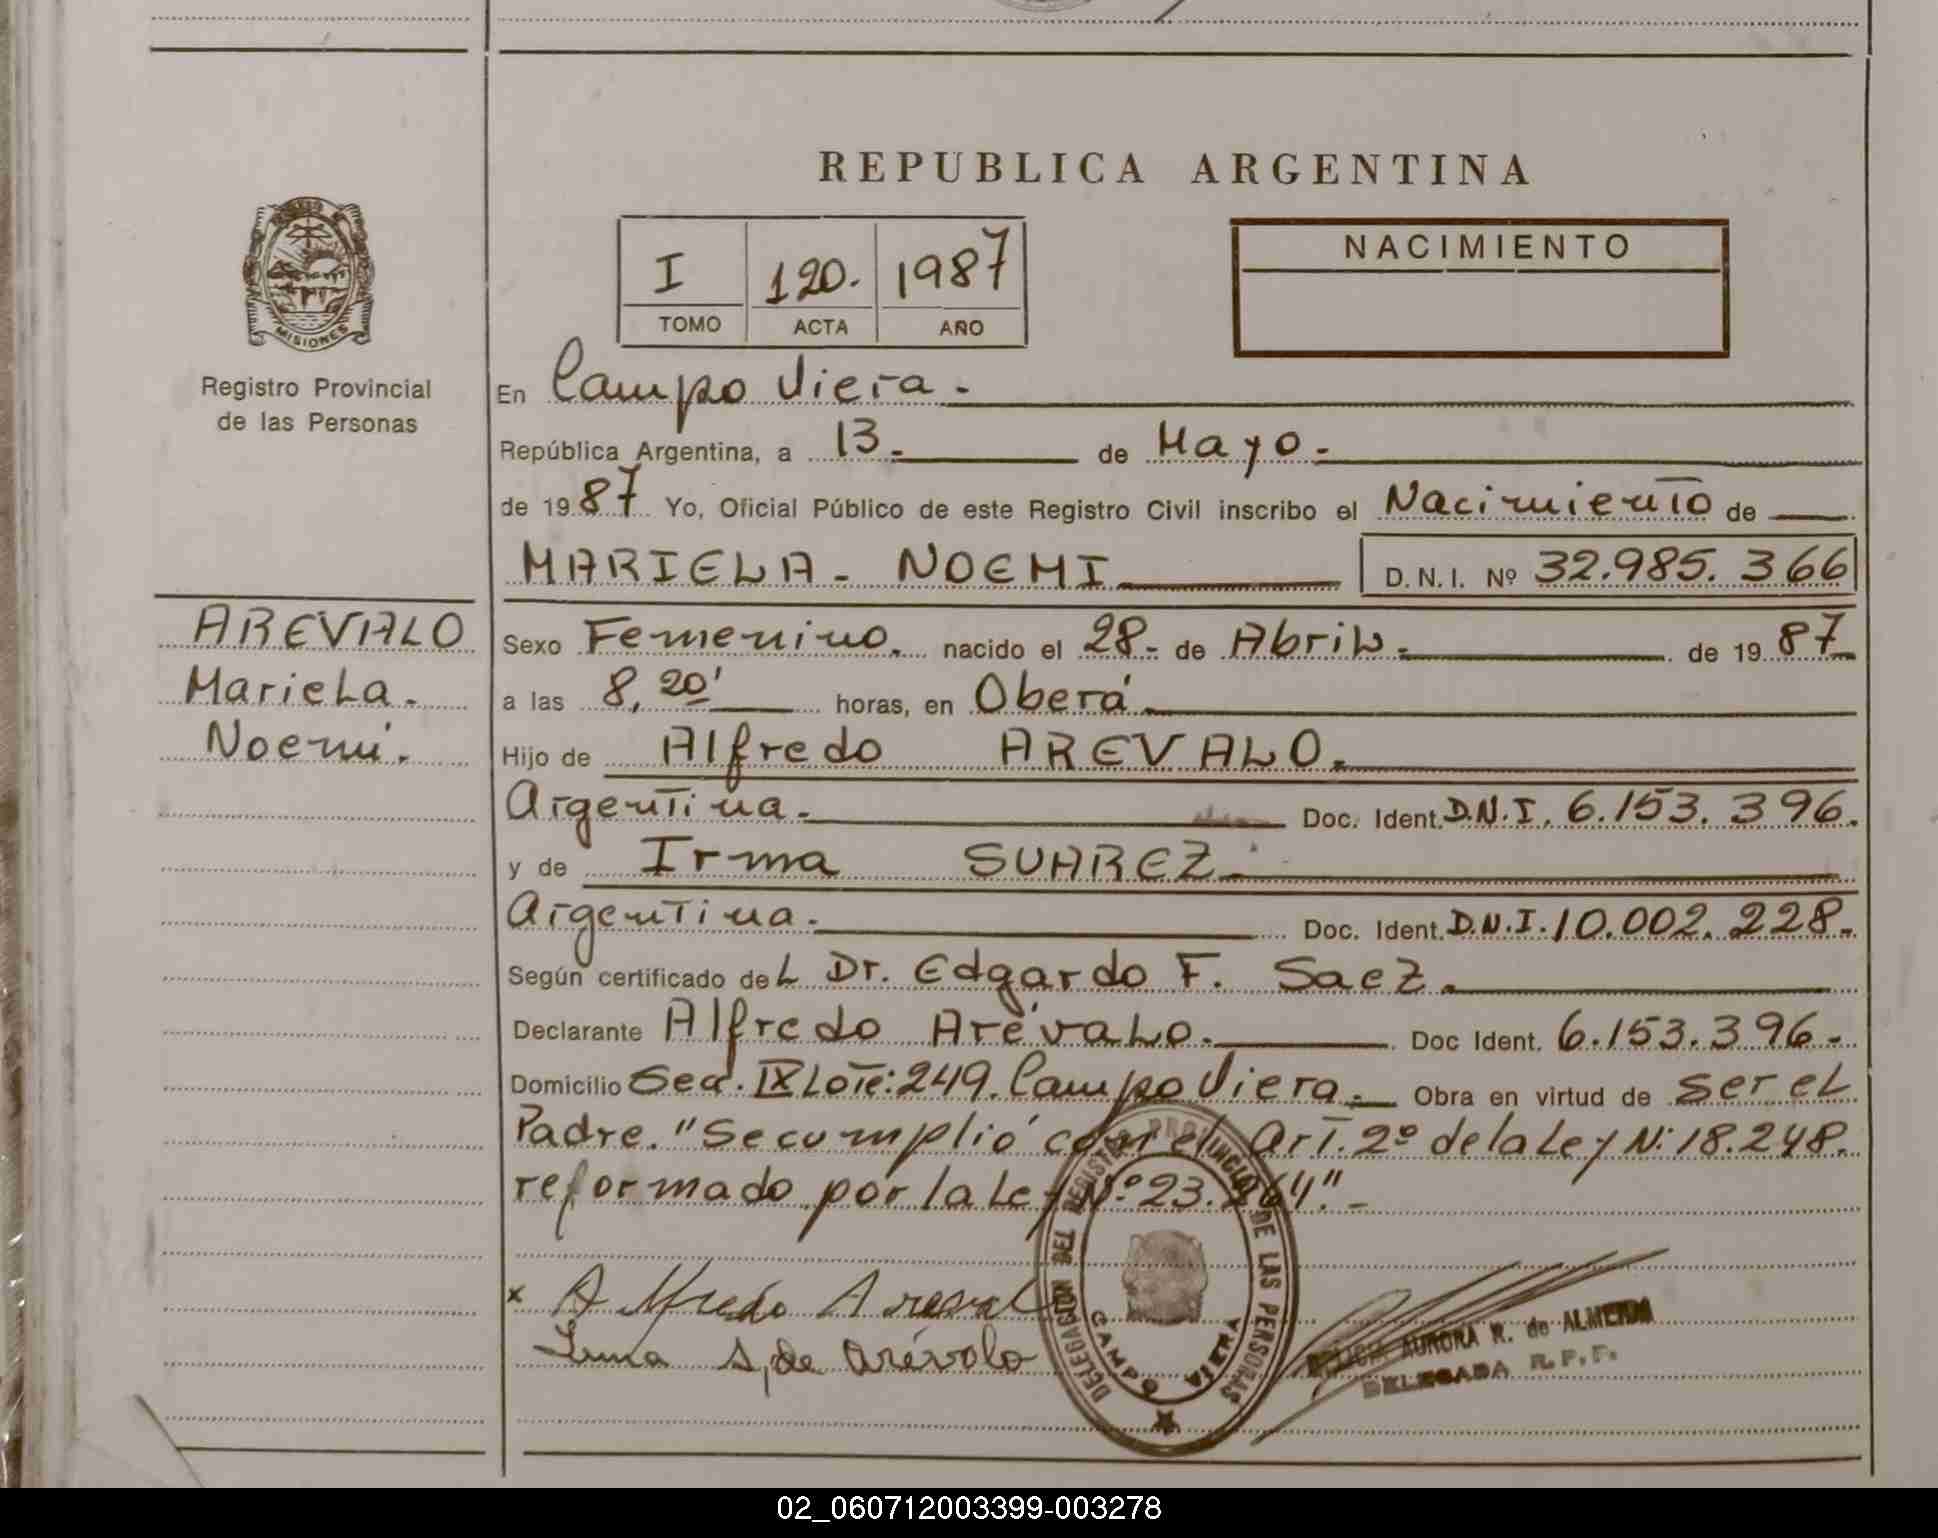 REPUBLICA ARGENTINA
MISIONES
Registro Provincial
de las Personas
I 120. 1987
TOMO ACTA AÑO
NACIMIENTO
En Campo Viera.
República Argentina, a 13 de Mayo.
de 1987 Yo, Oficial Público de este Registro Civil inscribo el Nacimiento de
MARIELA - NOEMI D.N.I. Nº 32.985.366
AREVALO
Mariela.
Noemi.
Sexo Femenino. nacido el 28 de Abril. de 1987
a las 8,20' horas, en Oberá
Hijo de Alfredo AREVALO.
Argentina. Doc. Ident. D.N.I. 6.153.396.
y de Irma SUAREZ
Argentina. Doc. Ident. D.N.I. 10.002.228.
Según certificado del Dr. Edgardo F. Saez.
Declarante Alfredo Arévalo. Doc Ident. 6.153.396.
Domicilio Secc. IX Lote: 249. Campo Viera. Obra en virtud de ser el
Padre. "Se cumplió con el Art. 2º de la Ley Nº 18.248.
reformado por la Ley Nº 23.264".
x Alfredo Areval
Irma S. de Arévolo
DELEGACION DEL REGISTRO PROVINCIAL DE LAS PERSONAS
CAMPO VIERA
AURORA R. de ALMEIDA
DELEGADA R.P.P.
02_060712003399-003278